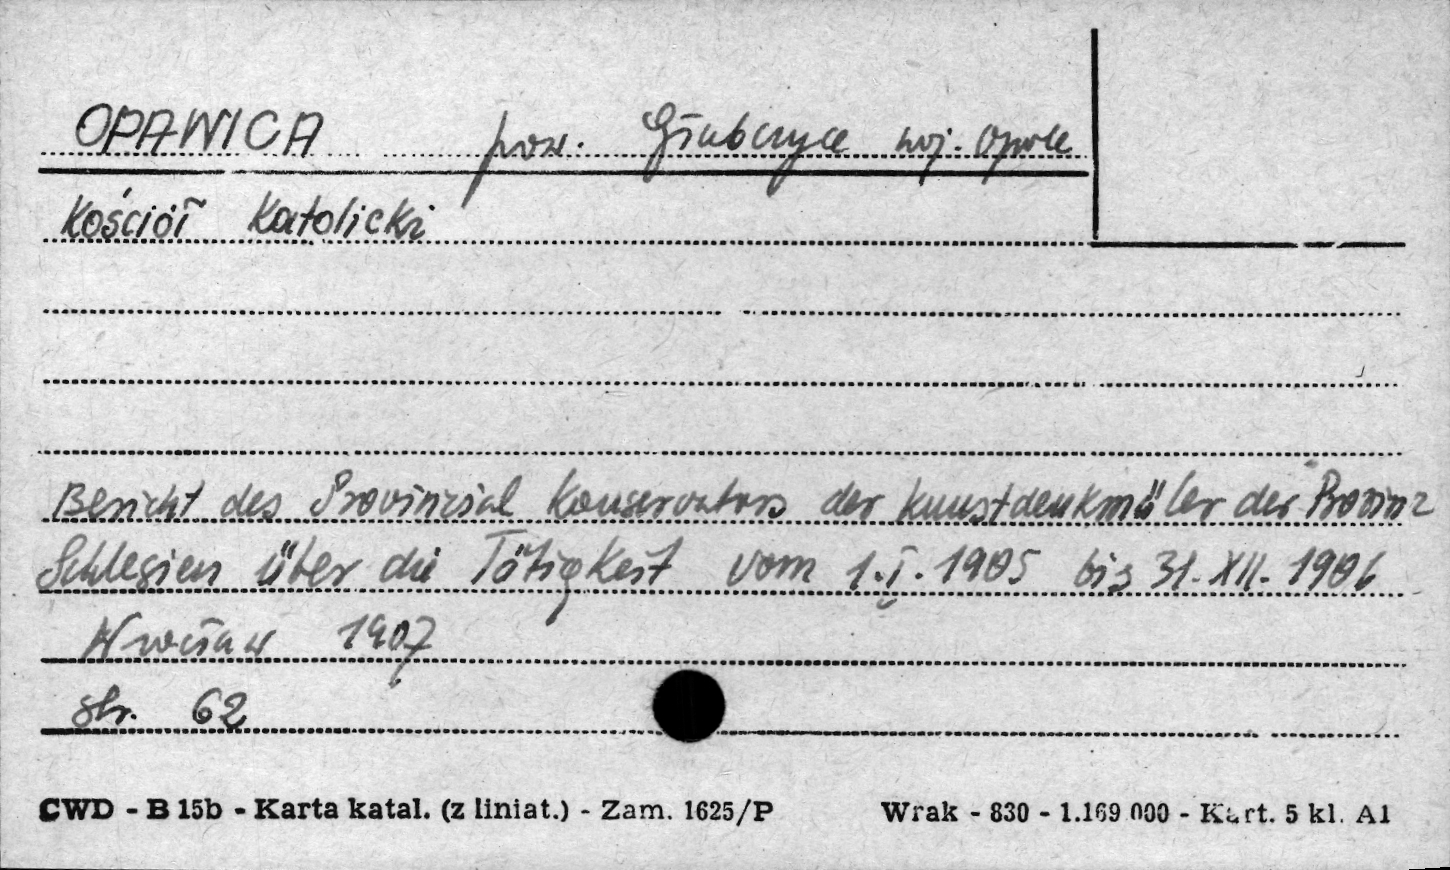 OPAWICA pow. Głubczyce woj. Opole
Kościół Katolicki
Bericht des Provinzial Konservators der Kunstdenkmäler der Provinz
Schlesien über die Tätigkeit vom 1.I.1905 bis 31.XII.1906
Wrocław 1907
str. 62
CWD - B 15b - Karta katal. (z liniat.) - Zam. 1625/P Wrak - 830 - 1.169 000 - Kart. 5 kl. A1